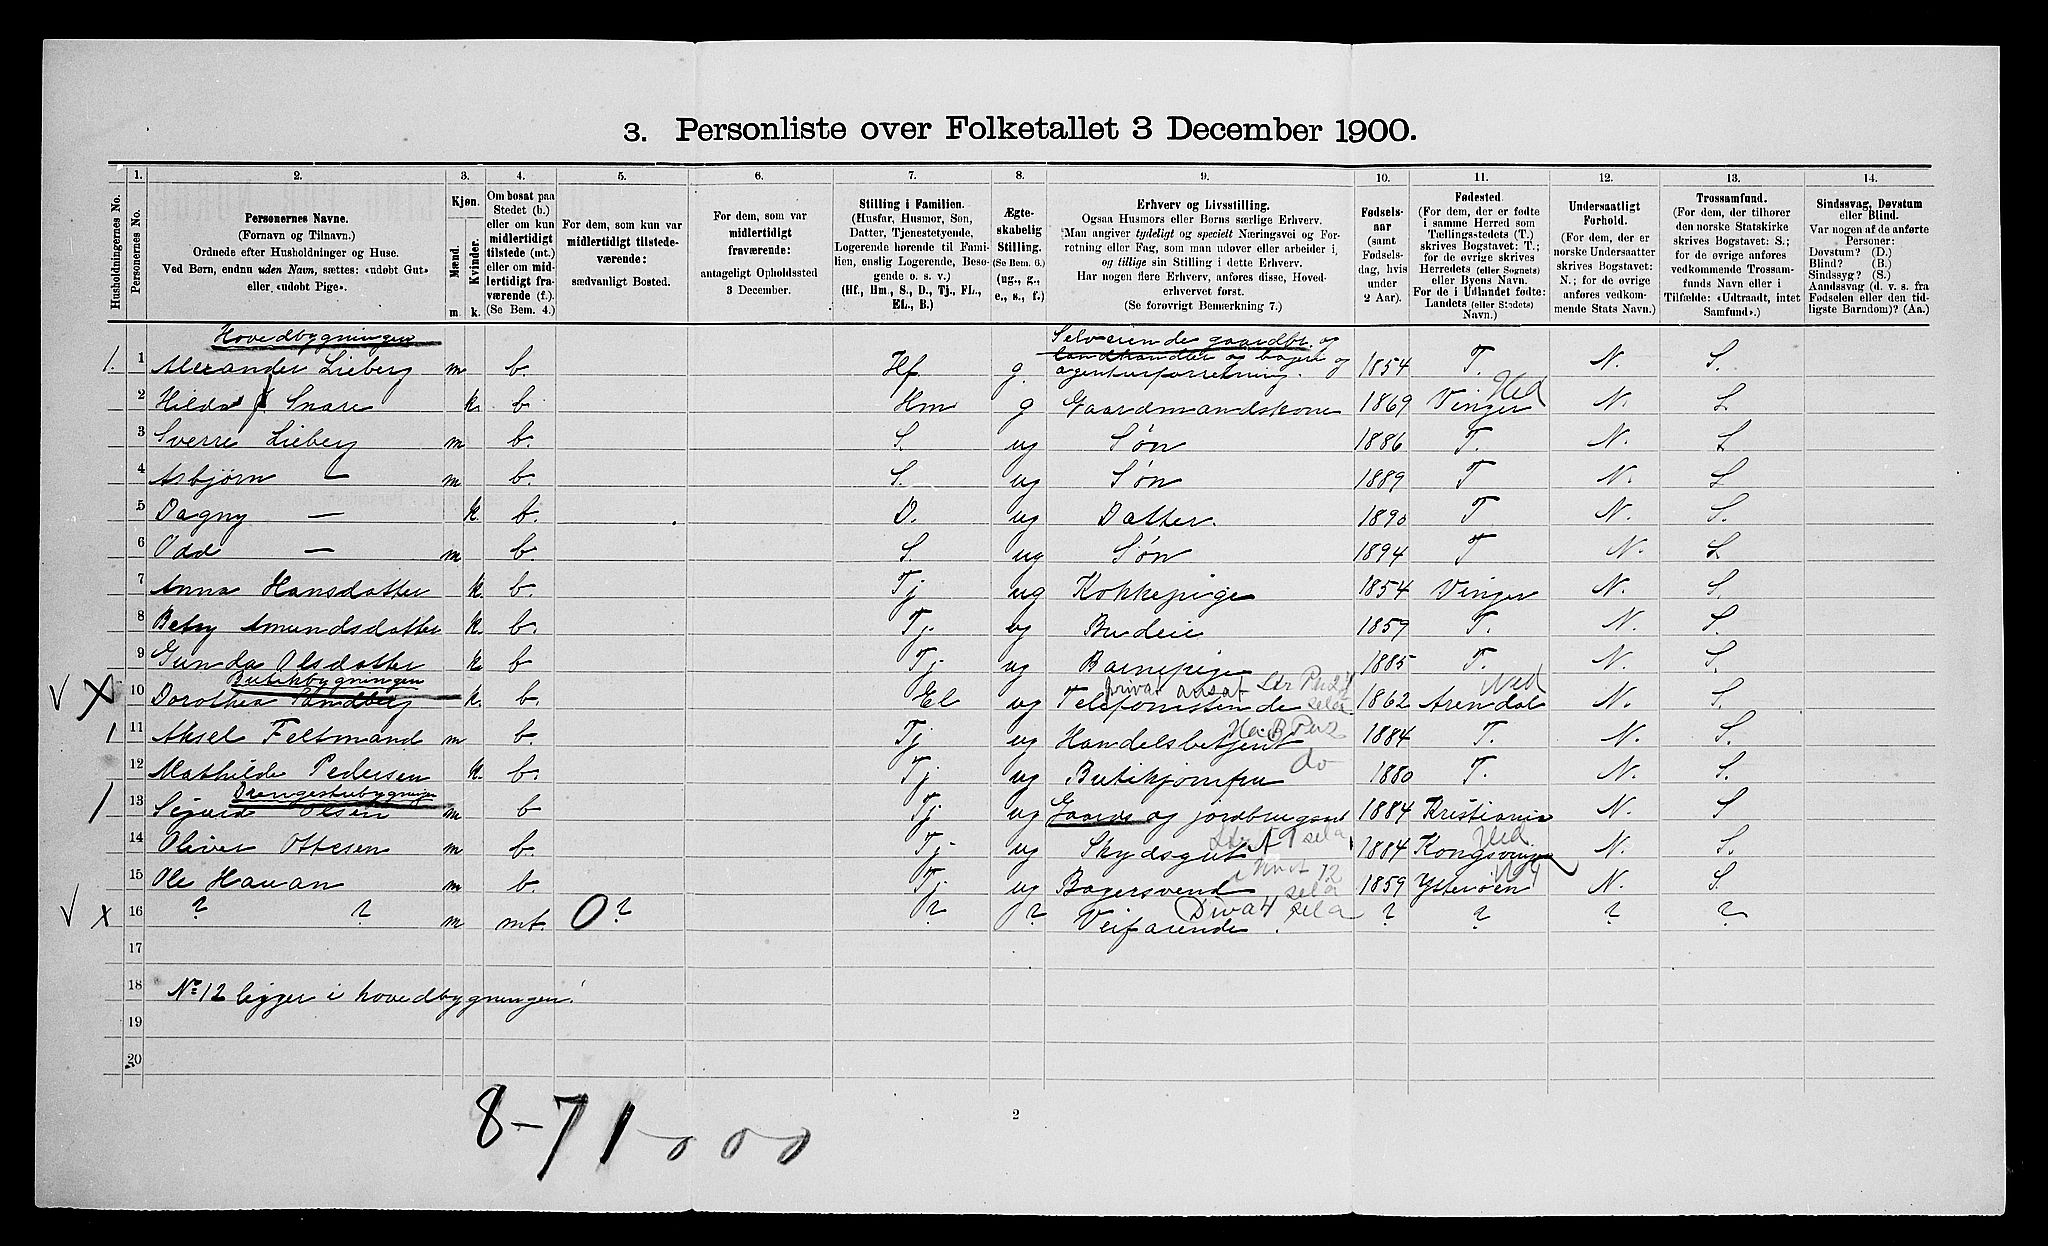 3. Personliste over Folketallet 3 December 1900.
Husholdningernes No.
1. Personernes No.
2. Personernes Navne.
(Fornavn og Tilnavn.)
Ordnede efter Husholdninger og Huse.
Ved Børn, endnu uden Navn, sættes: «udøbt Gut»
eller «udøbt Pige».
3. Kjøn.
Mænd. m.
Kvinder. k.
4. Om bosat paa
Stedet (b.)
eller om kun
midlertidigt
tilstede (mt.)
eller om mid-
lertidigt fra-
værende (f.).
(Se Bem. 4.)
5. For dem, som kun var
midlertidigt tilstede-
værende:
sædvanligt Bosted.
6. For dem, som var
midlertidigt
fraværende:
antageligt Opholdssted
3 December.
7. Stilling i Familien.
(Husfar, Husmor, Søn,
Datter, Tjenestetyende,
Logerende hørende til Fami-
lien, enslig Logerende, Besø-
gende o. s. v.)
(Hf., Hm., S., D., Tj., FL.,
EL., B.)
8. Ægte-
skabelig
Stilling.
(Se Bem. 6.)
(ug., g.,
e., s., f.)
9. Erhverv og Livsstilling.
Ogsaa Husmors eller Børns særlige Erhverv.
Man angiver tydeligt og specielt Næringsvei og For-
retning eller Fag, som man udøver eller arbeider i,
og tillige sin Stilling i dette Erhverv.
Har nogen flere Erhverv, anføres disse, Hoved-
erhvervet først.
(Se forøvrigt Bemærkning 7.)
10. Fødsels-
aar
(samt
Fødsels-
dag, hvis
under
2 Aar).
11. Fødested.
(For dem, der er fødte
i samme Herred som
Tællingsstedets (T.)
skrives Bogstavet: T.;
for de øvrige skrives
Herredets (eller Sognets)
eller Byens Navn.
For de i Udlandet fødte:
Landets (eller Stedets)
Navn.)
12. Undersaatligt
Forhold.
(For dem, der er
norske Undersaatter
skrives Bogstavet:
N.; for de øvrige
anføres vedkom-
mende Stats Navn.)
13. Trossamfund.
(For dem, der tilhører
den norske Statskirke
skrives Bogstavet: S.;
for de øvrige anføres
vedkommende Trossam-
funds Navn eller i
Tilfælde: «Udtraadt, intet
Samfund».)
14. Sindssvag, Døvstum
eller Blind.
Var nogen af de anførte
Personer:
Døvstum? (D.)
Blind? (B.)
Sindssyg? (S.)
Aandssvag (d. v. s. fra
Fødselen eller den tid-
ligste Barndom)? (Aa.)
Hovedbygningen
1. 1 Alexander Lieberg m b. Hf g. Selveiende gaardbr. og landhandler og bageri og agenturforretning. 1854 T. N. S.
2 Hilda Snare k. b. Hm g Gaardmandskone 1869 Vinger N. S
3 Sverre Lieberg m b. S. ug Søn 1886 T. N. S
4 Asbjørn — m b. S. ug Søn 1889 T N. S
5 Dagny — k. b. D. ug Datter. 1890 T N. S.
6 Odd — m b. S. ug Søn 1894 T N. S
7 Anna Hansdatter k. b. Tj ug Kokkepige 1854 Vinger N. S.
8 Betsy Amundsdatter k. b. Tj. ug Budeie 1859 T. N. S.
9 Gunda Olsdatter k. b Tj ug Barnepige 1885 T. N. S.
Butikbygningen
10 Dorothea Sandberg k. b. El ug privat ansat Telefonistinde 1862 Arendal N. S.
1 11 Aksel Feltmand m b. Tj ug Handelsbetjent 1884 T. N. S.
12 Mathilde Pedersen k. b. Tj ug Butikjomfru do 1880 T. N. S.
Drengestubygningen
1 13 Sigurd Olsen m b Tj ug Gaards og jordbrugsarb 1884 Kristiania N. S
14 Oliver Ottesen m b. Tj. ug Skydsgut 1884 Kongsvinger N. S.
15 Ole Hauan m b. Tj ug Bagersvend 1859 Ytterøen N. S.
16 ? ? m mt. 0 ? ? ? Veifarende. ? ? ? ?
17
18 No 12 ligger i hovedbygningen!
19
20
8-71-000
2